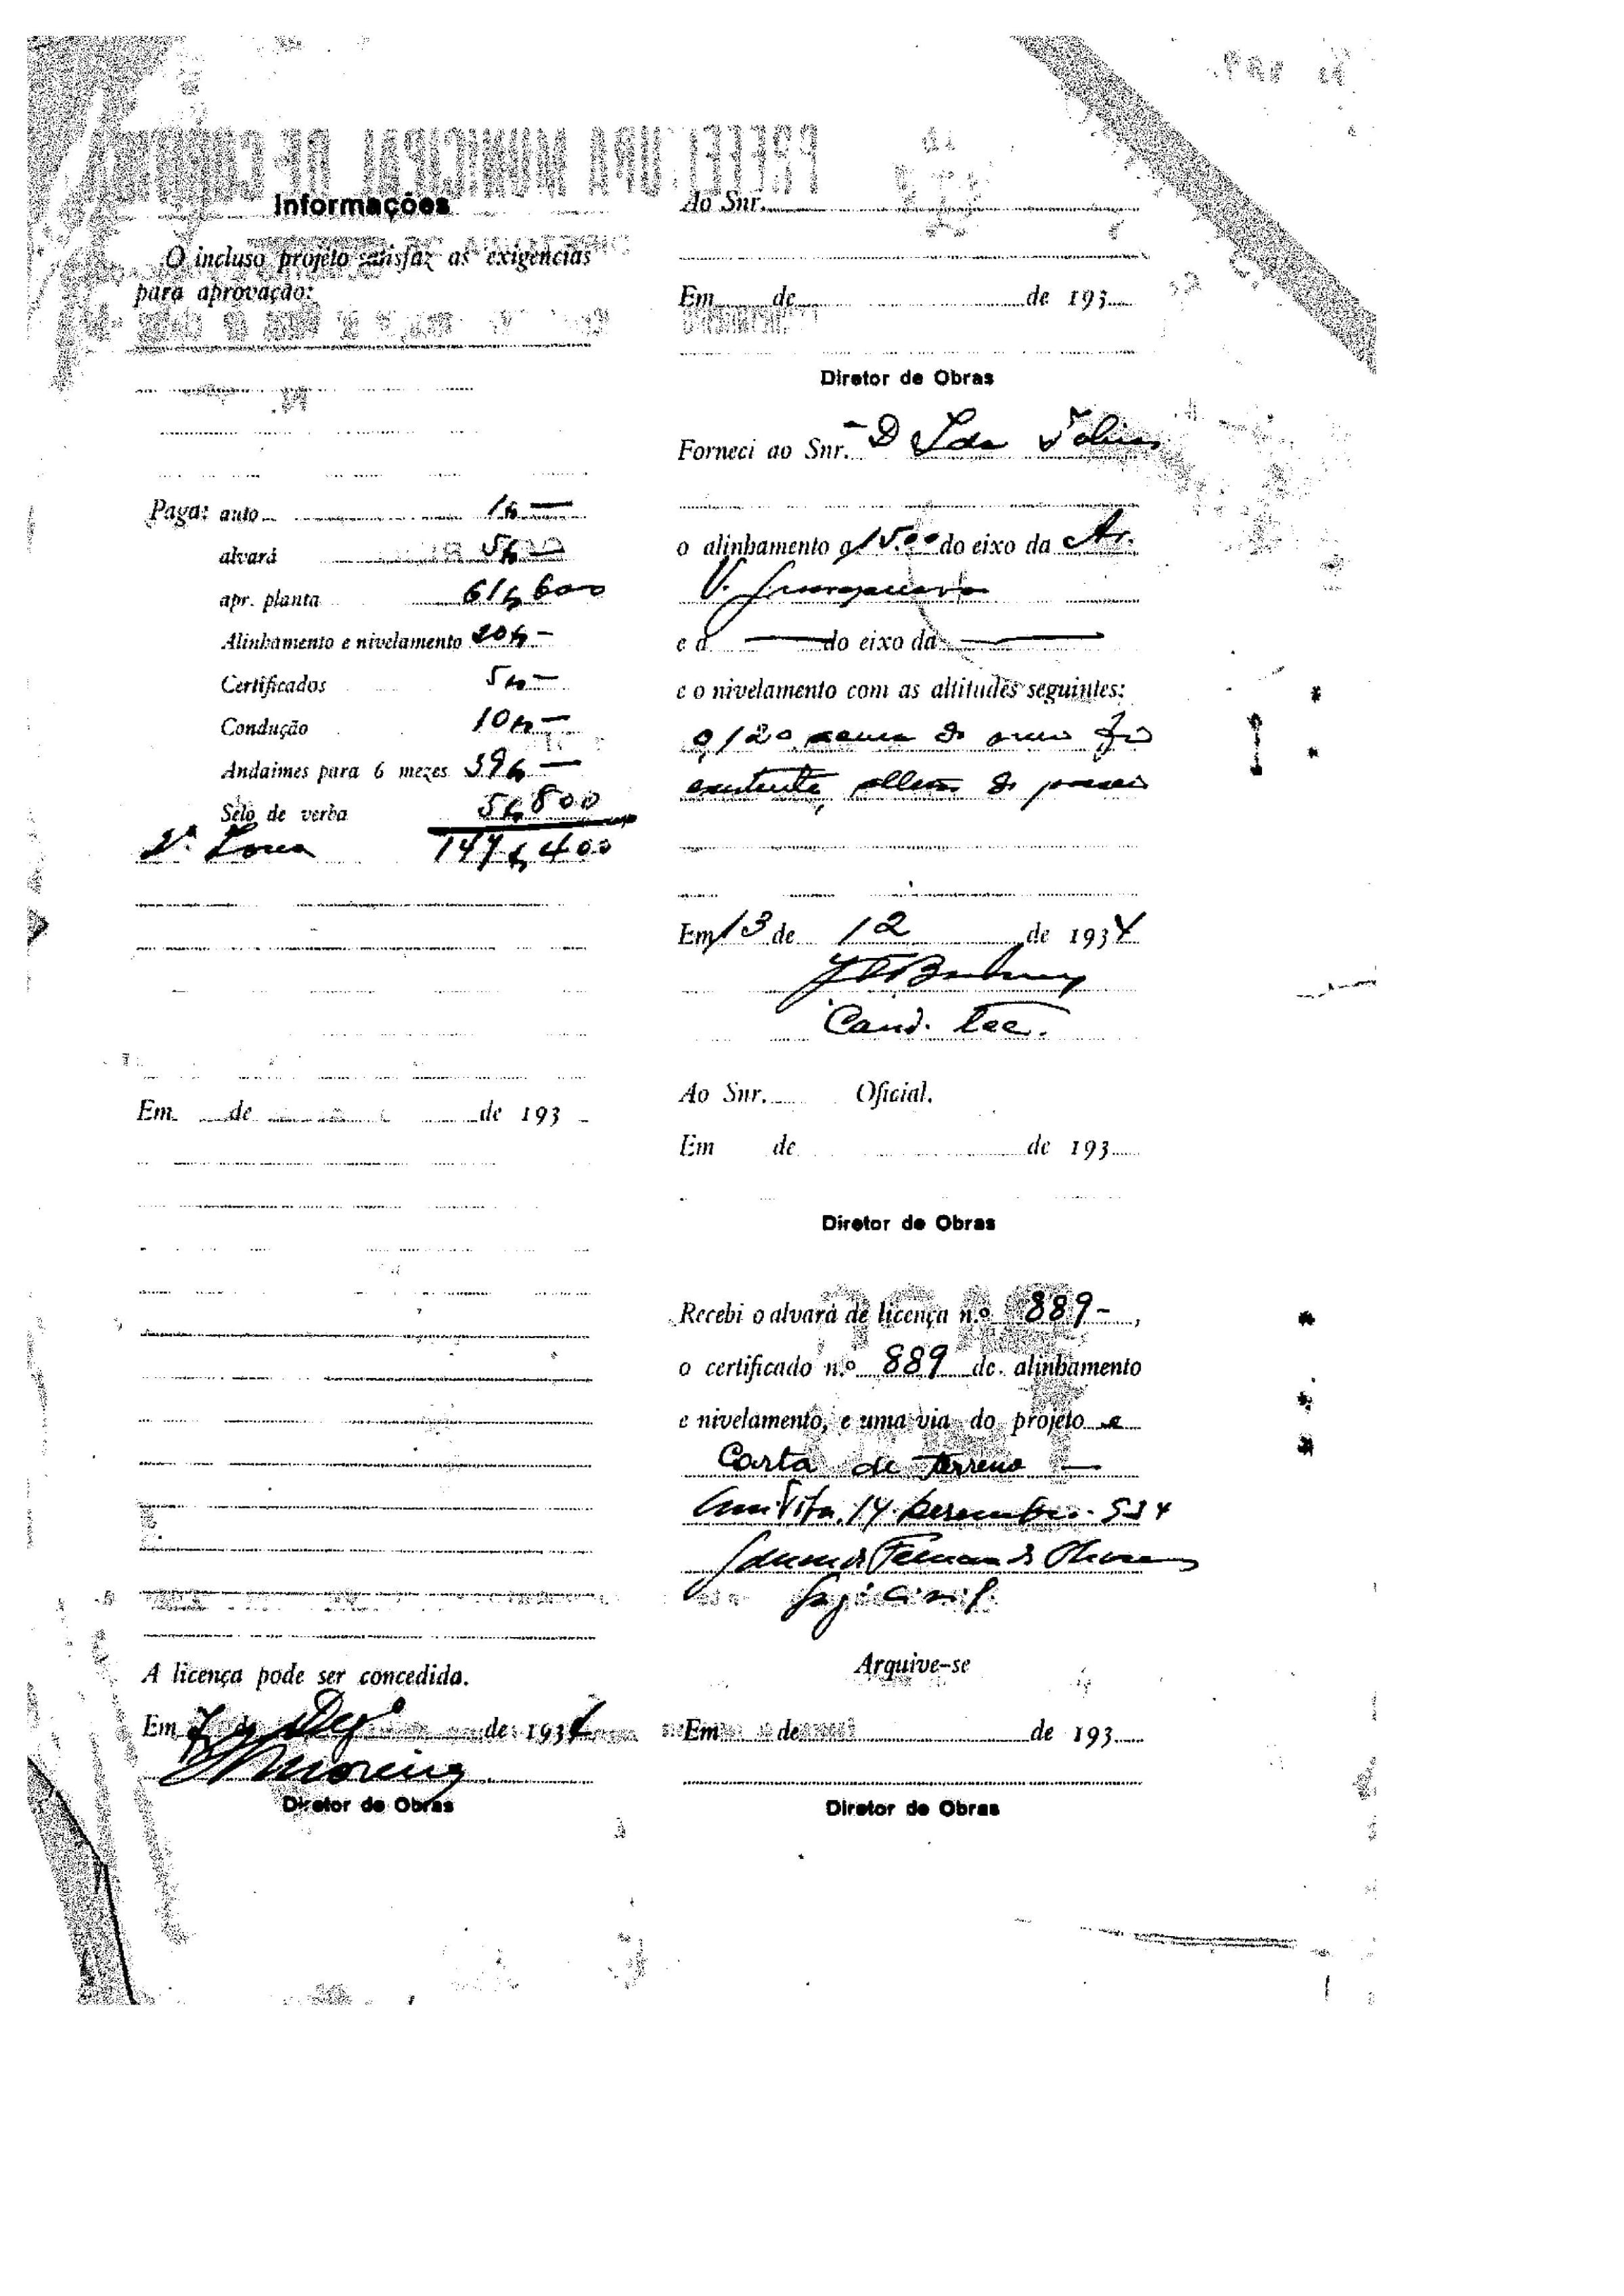 PREFEITURA MUNICIPAL DE
Informações
O incluso projéto satisfaz as exigencias
para aprovação:
Paga: auto 1$—
alvará 5$—
apr. planta 61$600
Alinhamento e nivelamento 20$—
Certificados 5$—
Condução 10$—
Andaimes para 6 mezes 39$—
Sélo de verba 5$800
147$400
Em de de 193
A licença pode ser concedida.
Em 7 de Dezº de 1934
Moreira
Diretor de Obras
Ao Snr.
Em de de 193
Diretor de Obras
Forneci ao Snr. D
o alinhamento a 15.00 do eixo da Av.
V. Guarapuava
e a — do eixo da —
e o nivelamento com as altitudes seguintes:
0,120 acima do meio fio
existente,
Em 13 de 12 de 1934
Cand. Tec.
Ao Snr. Oficial.
Em de de 193
Diretor de Obras
Recebi o alvará de licença n.º 889-,
o certificado n.º 889 de alinhamento
e nivelamento, e uma via do projéto e
Carta de terreno —
14 Dezembro 934
Fernando
Engº Civil
Arquive-se
Em de de 193
Diretor de Obras